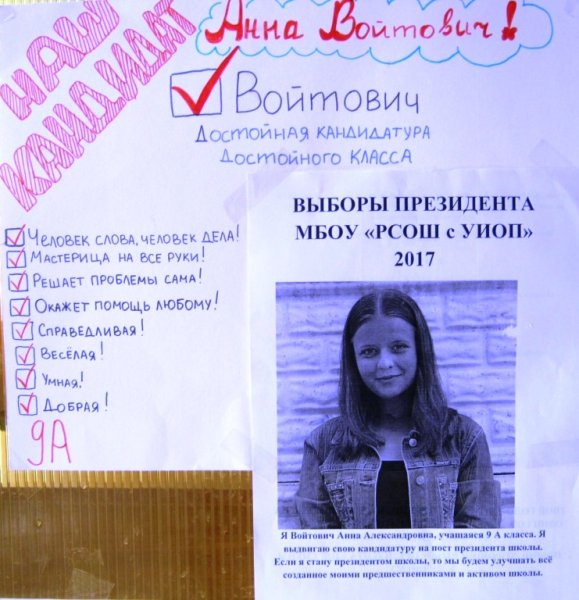 НАШ
КАНДИДАТ
Анна Войтович!
Войтович
Достойная кандидатура
Достойного класса
Человек слова, человек дела!
Мастерица на все руки!
Решает проблемы сама!
Окажет помощь любому!
Справедливая!
Весёлая!
Умная!
Добрая!
9А
ВЫБОРЫ ПРЕЗИДЕНТА
МБОУ «РСОШ с УИОП»
2017
Я Войтович Анна Александровна, учащаяся 9 А класса. Я
выдвигаю свою кандидатуру на пост президента школы.
Если я стану президентом школы, то мы будем улучшать всё
созданное моими предшественниками и активом школы.